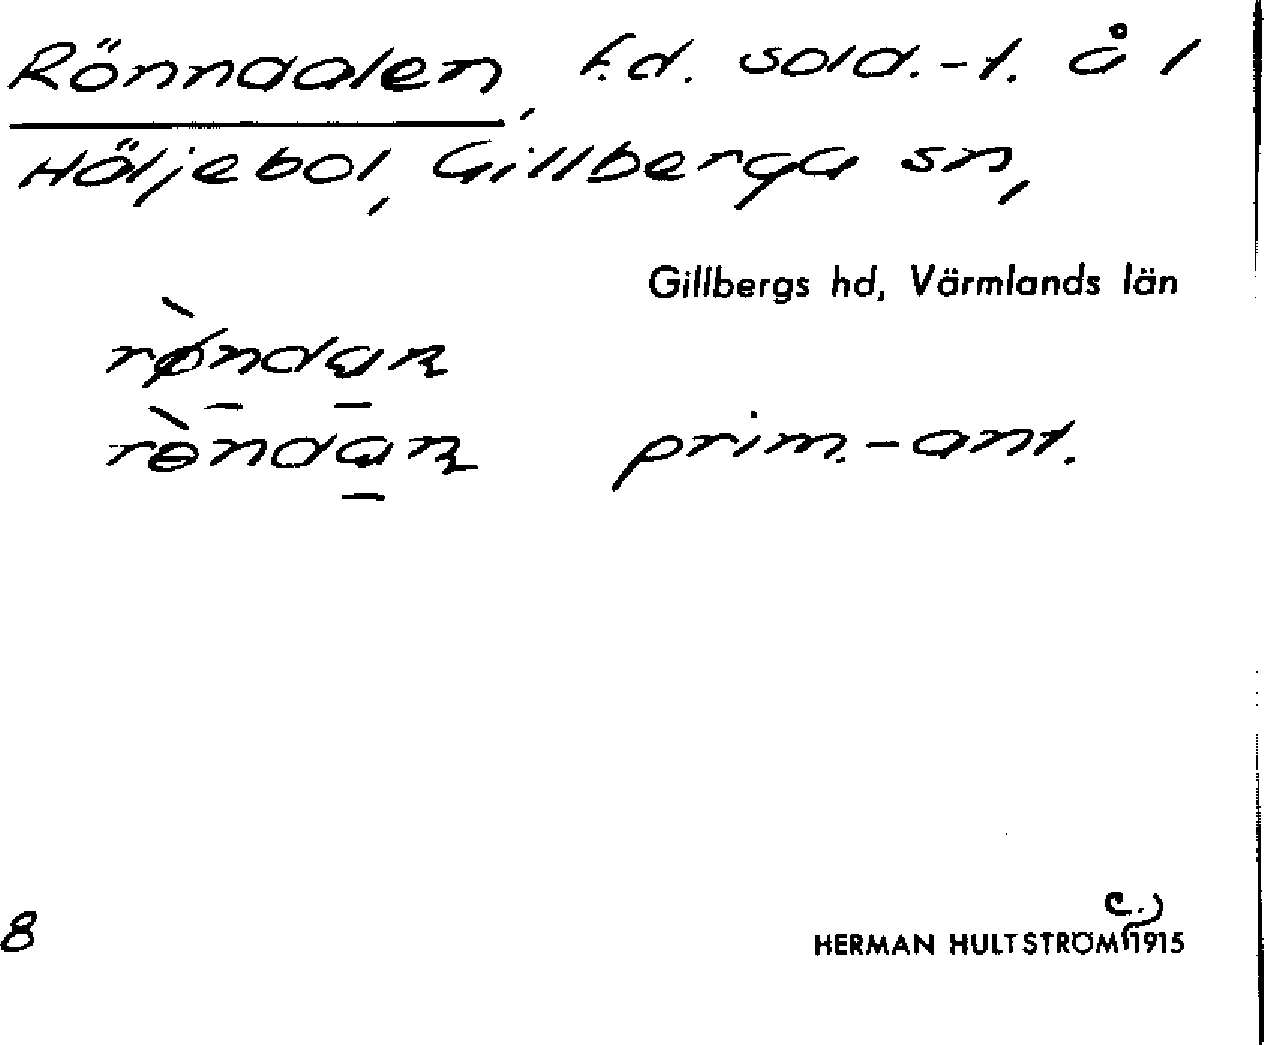 Rönndalen, f.d. sold.-t. å 1
Höljebol, Gillberga sn,
Gillbergs hd, Värmlands län
rø̀ndan
rɵ̀ndan prim.-ant.
8
c.)
HERMAN HULTSTRÖM 1915